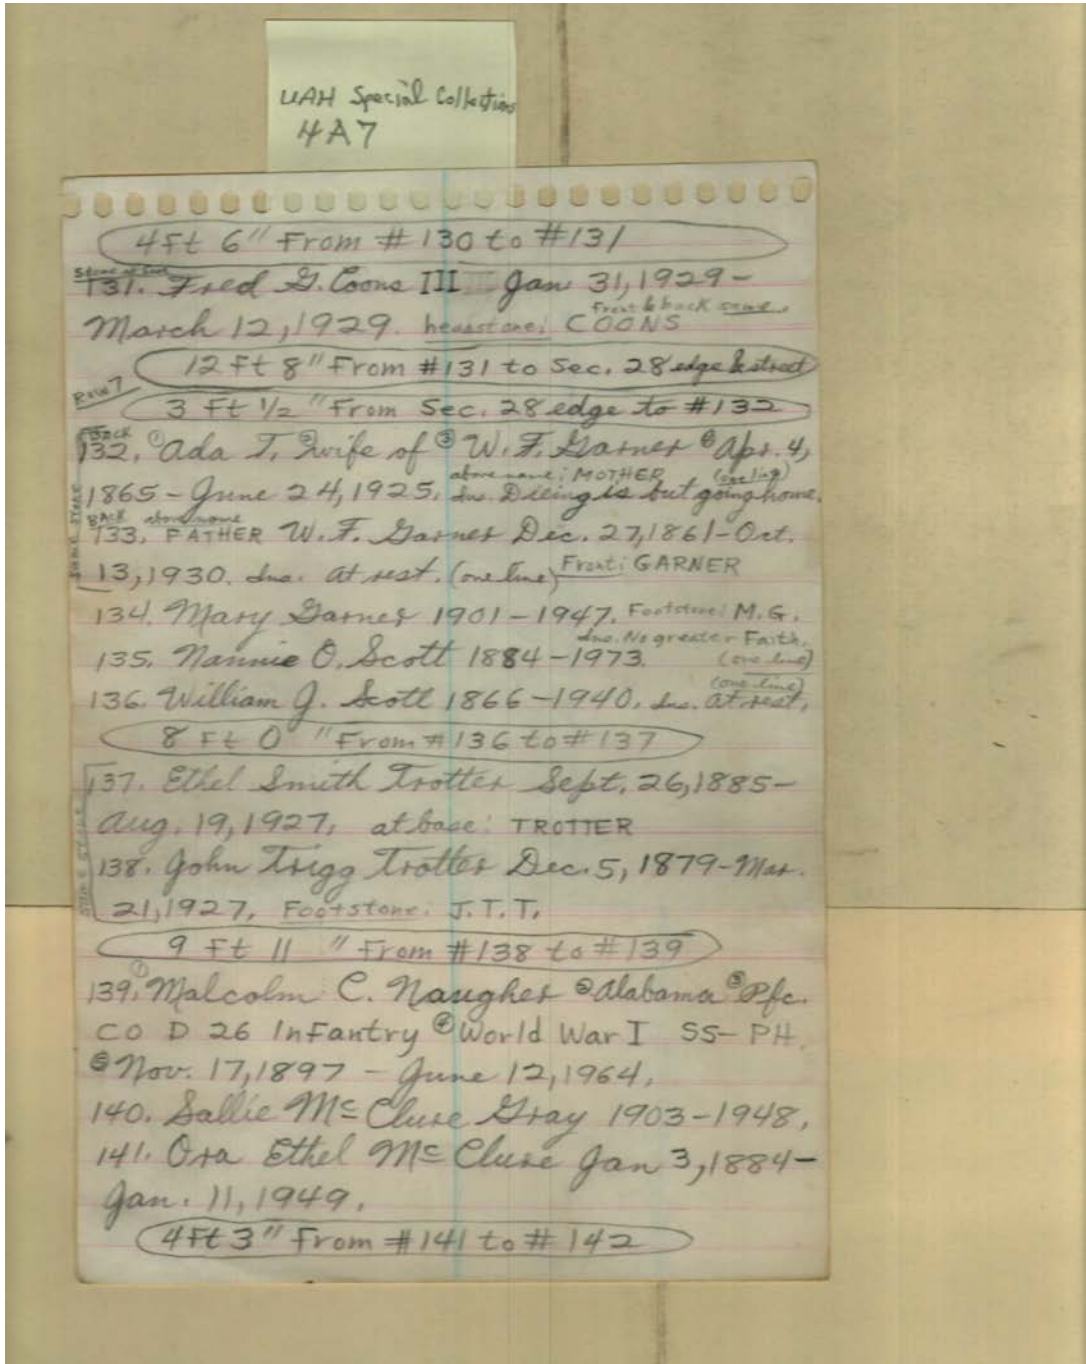 UAH Special Collections
4A7
4 Ft 6" From #130 to #131
131. Fred G. Coons III Jan 31, 1929-
Front & back same.
March 12, 1929. headstone: COONS
12 Ft 8" From #131 to Sec. 28 edge & street
Row 7
3 Ft 1/2 " From Sec. 28 edge to #132
BACK
132. ① Ada T. ② wife of ③ W. F. Garner ④ Apr. 4,
above name: MOTHER (one line)
1865 - June 24, 1925. Ins. Dieing is but going home.
SAME STONE
BACK above name
133. FATHER W. F. Garner Dec. 27, 1861-Oct.
13, 1930. Ins. At rest. (one line) Front: GARNER
134. Mary Garner 1901-1947. Footstone: M.G.
Ins. No greater Faith.
135. Nannie O. Scott 1884-1973. (one line)
(one line)
136. William J. Scott 1866-1940. Ins. At rest.
8 Ft 0 " From #136 to #137
137. Ethel Smith Trotter Sept. 26, 1885-
Aug. 19, 1927, at base: TROTTER
SAME STONE
138. John Trigg Trotter Dec. 5, 1879-Mar.
21, 1927, Footstone: J.T.T.
9 Ft 11 " From #138 to #139
139. ① Malcolm C. Naugher ② Alabama ③ Pfc.
CO D 26 Infantry ④ World War I SS-PH.
⑤ Nov. 17, 1897 - June 12, 1964.
140. Sallie Mc Clure Gray 1903-1948.
141. Ora Ethel Mc Clure Jan 3, 1884-
Jan. 11, 1949.
4 Ft 3" From #141 to #142